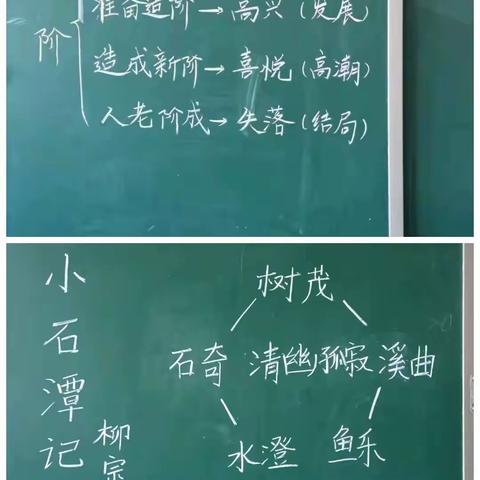 准备造阶→高兴(发展)
阶
造成新阶→喜悦(高潮)
人老阶成→失落(结局)
小石潭记
柳宗
树茂
石奇 清幽孤寂 溪曲
水澄 鱼乐